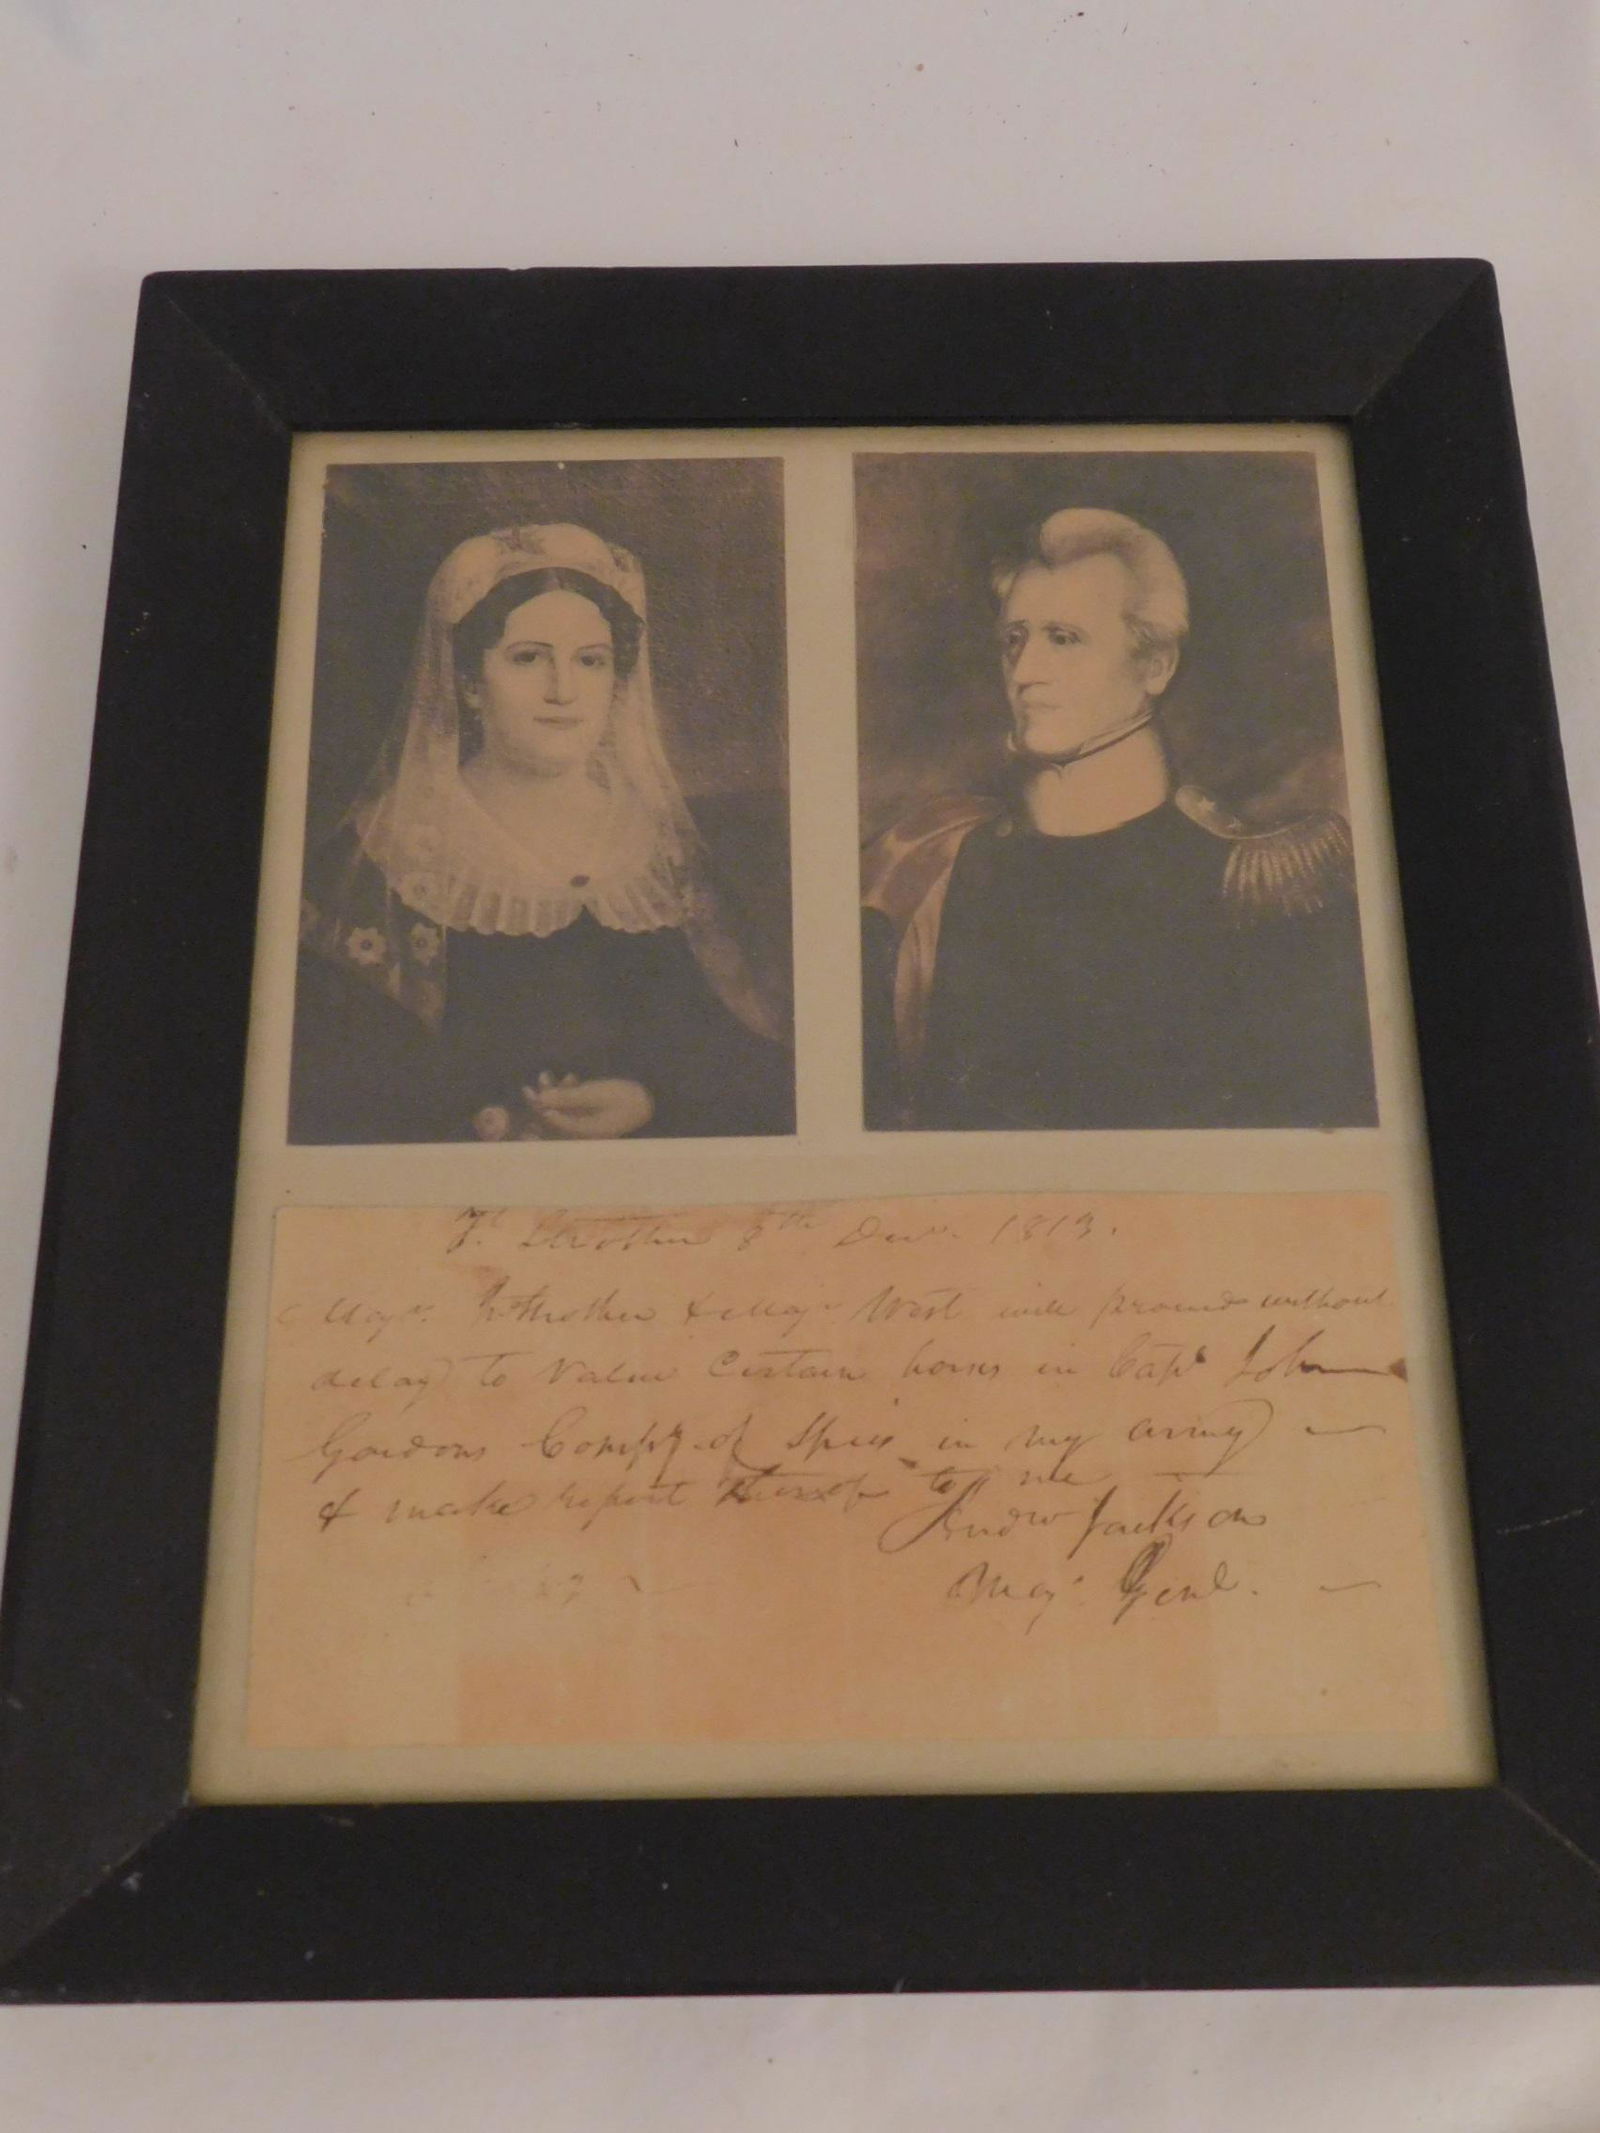 Ft. Strother 8th Decr. 1813.
Majr. Strother & Majr West will proceed without
delay to Value Certain horses in Capt John
Gordons Compy. of Spies in my army —
& make report thereof to me —
Andrew Jackson
Majr. Genl. —